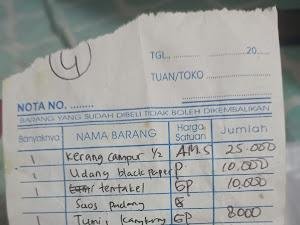 4
TGL., .................... 20......
TUAN/TOKO ....................
NOTA NO. ........
BARANG YANG SUDAH DIBELI TIDAK BOLEH DIKEMBALIKAN
Banyaknya NAMA BARANG Harga Satuan Jumlah
1 Kerang campur 1/2 AMS 25.000
1 Udang black paper P 10.000
1 tentakel GP 10.000
Saos padang
1 Tumis kangkung GP 8000